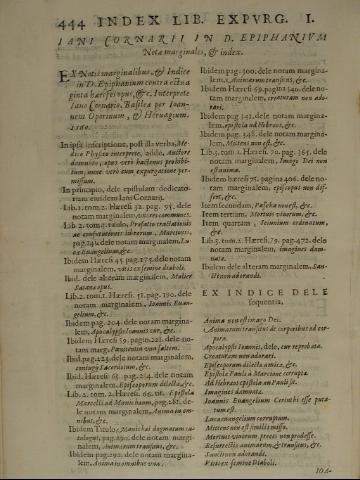 444 INDEX LIB. EXPVRG. I.
IANI CORNARII IN D. EPIPHANIVM
Notæ marginales, & index.
EX Notis marginalibus, & Indice
in D. Epiphanium contra octua
ginta hæreses opus, &c. Interprete
Iano Cornario, Basileæ per Ioan-
nem Oporinum, & Heruagium.
1560.
In ipsa inscriptione, post illa verba, Me-
dico Physico interprete, adde, Auctore
damnato, opus verò hactenus prohibi-
tum, nunc cum expurgatione per-
missum.
In principio, dele epistolam dedicato-
riam eiusdem Iani Cornarij.
Lib. 1. tom. 2. Hæresi 32. pag. 95. dele
notam marginalem,
Lib. 2. tom. 1.
ac confutationes librorum, Marcionis,
pag. 142 dele notam marginalem, Lu-
ex Euangelium, &c.
Ibidem Hæresi 45. pag. 175. dele notam
marginalem, vitis ex semine diaboli.
Ibid. dele alteram marginalem, Mulier
Satanæ opus.
Lib. 2. tom. 1. Hæresi 51. pag. 190. dele
notam marginalem, Ioannis Euan-
gelium, &c.
Ibidem pag. 204. dele notam margina-
lem, Apocalypsis Ioannis cur, &c.
Ibidem Hæresi 59. pagina 223. dele no-
tam marg. Pœnitentia non salutem.
Ibid. pag. 225. dele notam marginalem,
coniugij Sacerdotum, &c.
Ibid. Hæresi 63. pag. 234. dele notam
marginalem, Episcoporum dilecta, &c.
Lib. 2. tom. 2. Hæresi 65. ubi Epistola
Marcelli ad Manichæum, pag. 261. de-
le notam marginalem, Anima in om-
nibus, &c.
Ibidem Titulo; Manichæi dogmatum ca-
talogus, pag. 290. dele notam margi-
nalem, Animarum transitus, &c.
Ibidem pag. 292. dele notam margina-
lem, Anima in omnibus vna.
Ibidem pag. 300. dele notam margina-
lem, Animarum transitus, &c.
Ibidem Hæresi 69. pagina 340. dele no-
tam marginalem, creaturam non ado-
rari.
Ibidem pag. 342. dele notam margina-
lem, epistola ad Hebræos, &c.
Ibidem pag. 348. dele notam margina-
lem, Mittens non est, &c.
Lib. 3. tom. 1. Hæresi. 70. pag. 365. dele
notam marginalem, Imago Dei non
est amissa.
Ibidem hæresi 75. pagina 406. dele no-
tam marginalem, episcopus non dif-
fert, &c.
Item secundam, Pascha non est, &c.
Item tertiam, Mortuis viuorum, &c.
Item quartam, Ieiunium ordinatum,
&c.
Lib. 3. tom. 1. Hæresi. 79. pag. 472. dele
notam marginalem, imagines dam-
nata.
Ibidem dele alteram marginalem, San-
cti non adorandi.
EX INDICE DELE
sequentia.
Anima non est imago Dei.
Animarum transitus de corporibus ad cor-
pora.
Apocalypsis Ioannis, dele, cur reprobata.
Creaturam non adorari.
Episcoporum dilecta amica, &c.
Epistola Pauli à Marcione corrupta.
Ad Hebræos epistola an Pauli sit.
Imagines damnata.
Ioannis Euangelium Cerinthi esse puta-
tum est.
Lucæ euangelium corruptum.
Mittens non est similis misso.
Mortuis viuorum preces non prodesse.
Resurrectio animarum, &c.
Sancti non adorandi.
Vitis ex semine Diaboli.
IOA-